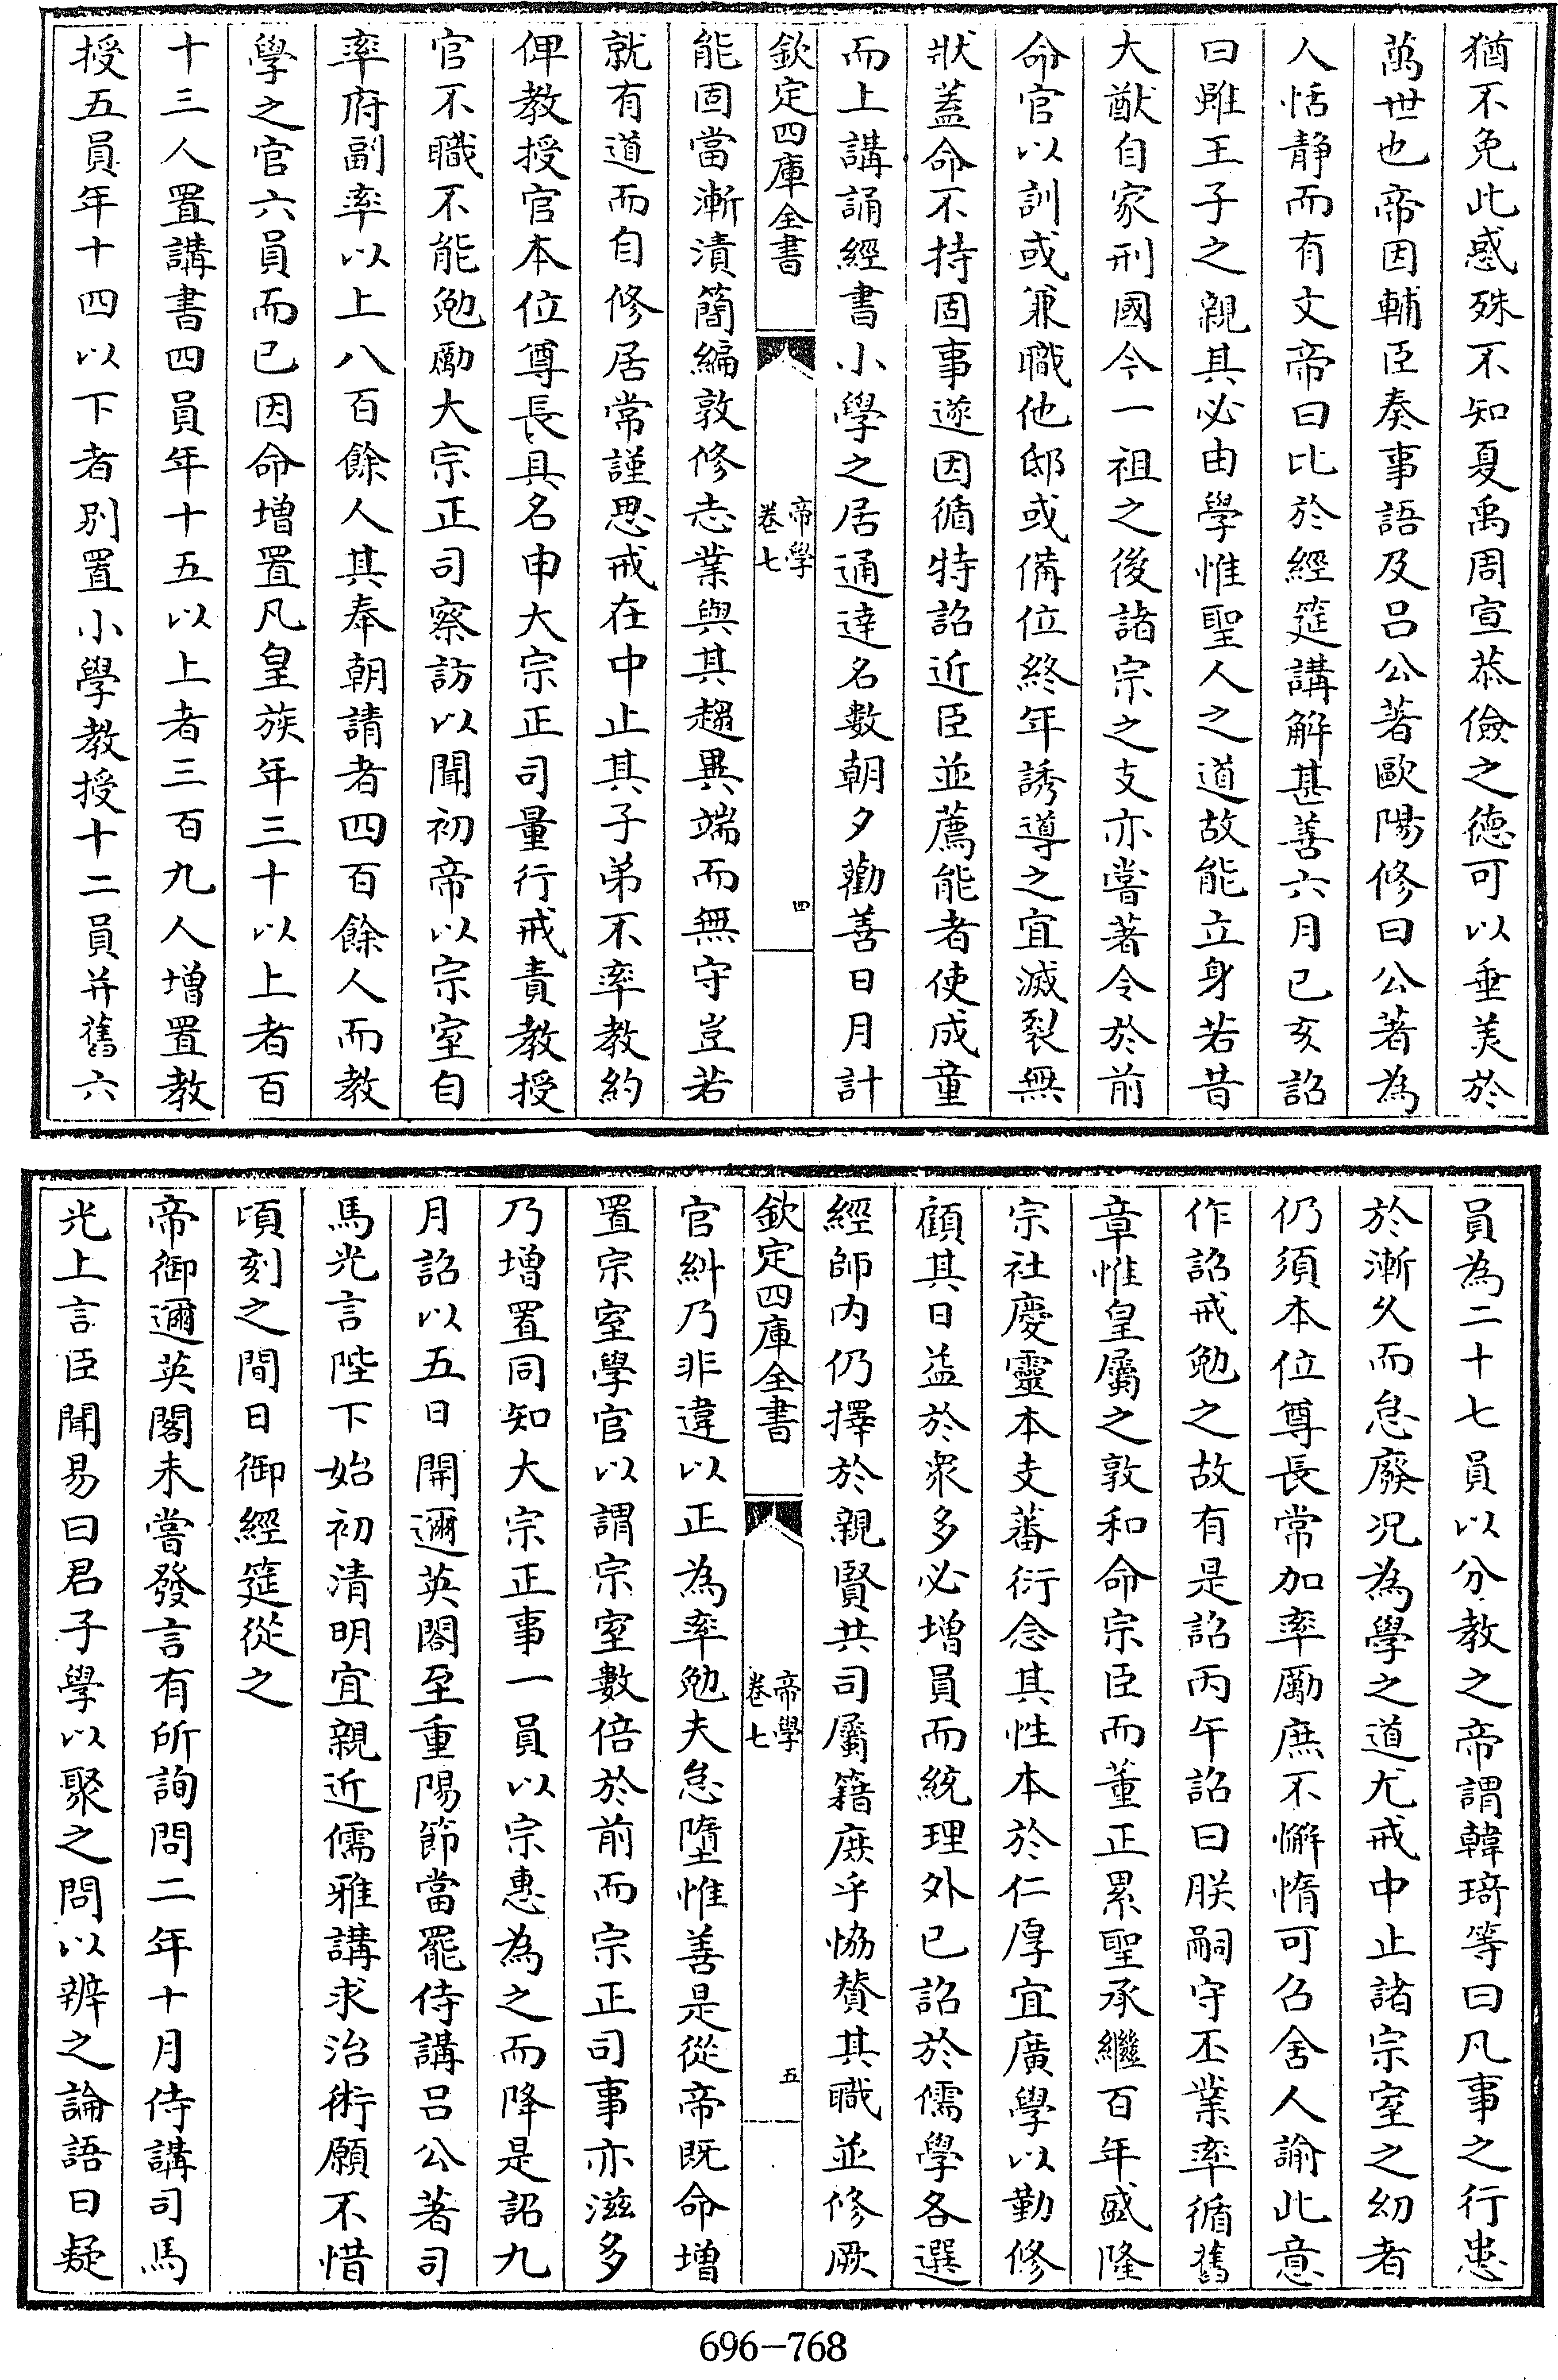 猶不免此惑殊不知夏禹周宣恭儉之德可以垂美於
萬世也帝因輔臣奏事語及呂公著歐陽修曰公著為
人恬靜而有文帝曰比於經筵講解甚善六月已亥詔
曰雖王子之親其必由學惟聖人之道故能立身若昔
大猷自家刑國今一祖之後諸宗之支亦嘗著令於前
命官以訓或兼職他邸或備位終年誘導之宜滅裂無
狀蓋命不持固事遂因循特詔近臣並薦能者使成童
而上講誦經書小學之居通達名數朝夕勸善日月計
欽定四庫全書
帝學
卷七
四
能固當漸漬簡編敦修志業與其趨異端而無守豈若
就有道而自修居常謹思戒在中止其子弟不率教約
俾教授官本位尊長具名申大宗正司量行戒責教授
官不職不能勉勵大宗正司察訪以聞初帝以宗室自
率府副率以上八百餘人其奉朝請者四百餘人而教
學之官六員而已因命增置凡皇族年三十以上者百
十三人置講書四員年十五以上者三百九人增置教
授五員年十四以下者別置小學教授十二員并舊六
員為二十七員以分教之帝謂韓琦等曰凡事之行患
於漸久而怠廢况為學之道尤戒中止諸宗室之幼者
仍須本位尊長常加率勵庶不懈惰可召舍人諭此意
作詔戒勉之故有是詔丙午詔曰朕嗣守丕業率循舊
章惟皇屬之敦和命宗臣而董正累聖承繼百年盛隆
宗社慶靈本支蕃衍念其性本於仁厚宜廣學以勤修
顧其日益於眾多必增員而統理外已詔於儒學各選
經師内仍擇於親賢共司屬籍庶乎恊贊其職並修厥
欽定四庫全書
帝學
卷七
五
官糾乃非違以正為率勉夫怠墮惟善是從帝既命增
置宗室學官以謂宗室數倍於前而宗正司事亦滋多
乃增置同知大宗正事一員以宗惠為之而降是詔九
月詔以五日開邇英閣至重陽節當罷侍講呂公著司
馬光言陛下始初清明宜親近儒雅講求治術願不惜
頃刻之間日御經筵從之
帝御邇英閣未嘗發言有所詢問二年十月侍講司馬
光上言臣聞易曰君子學以聚之問以辨之論語曰疑
696-768